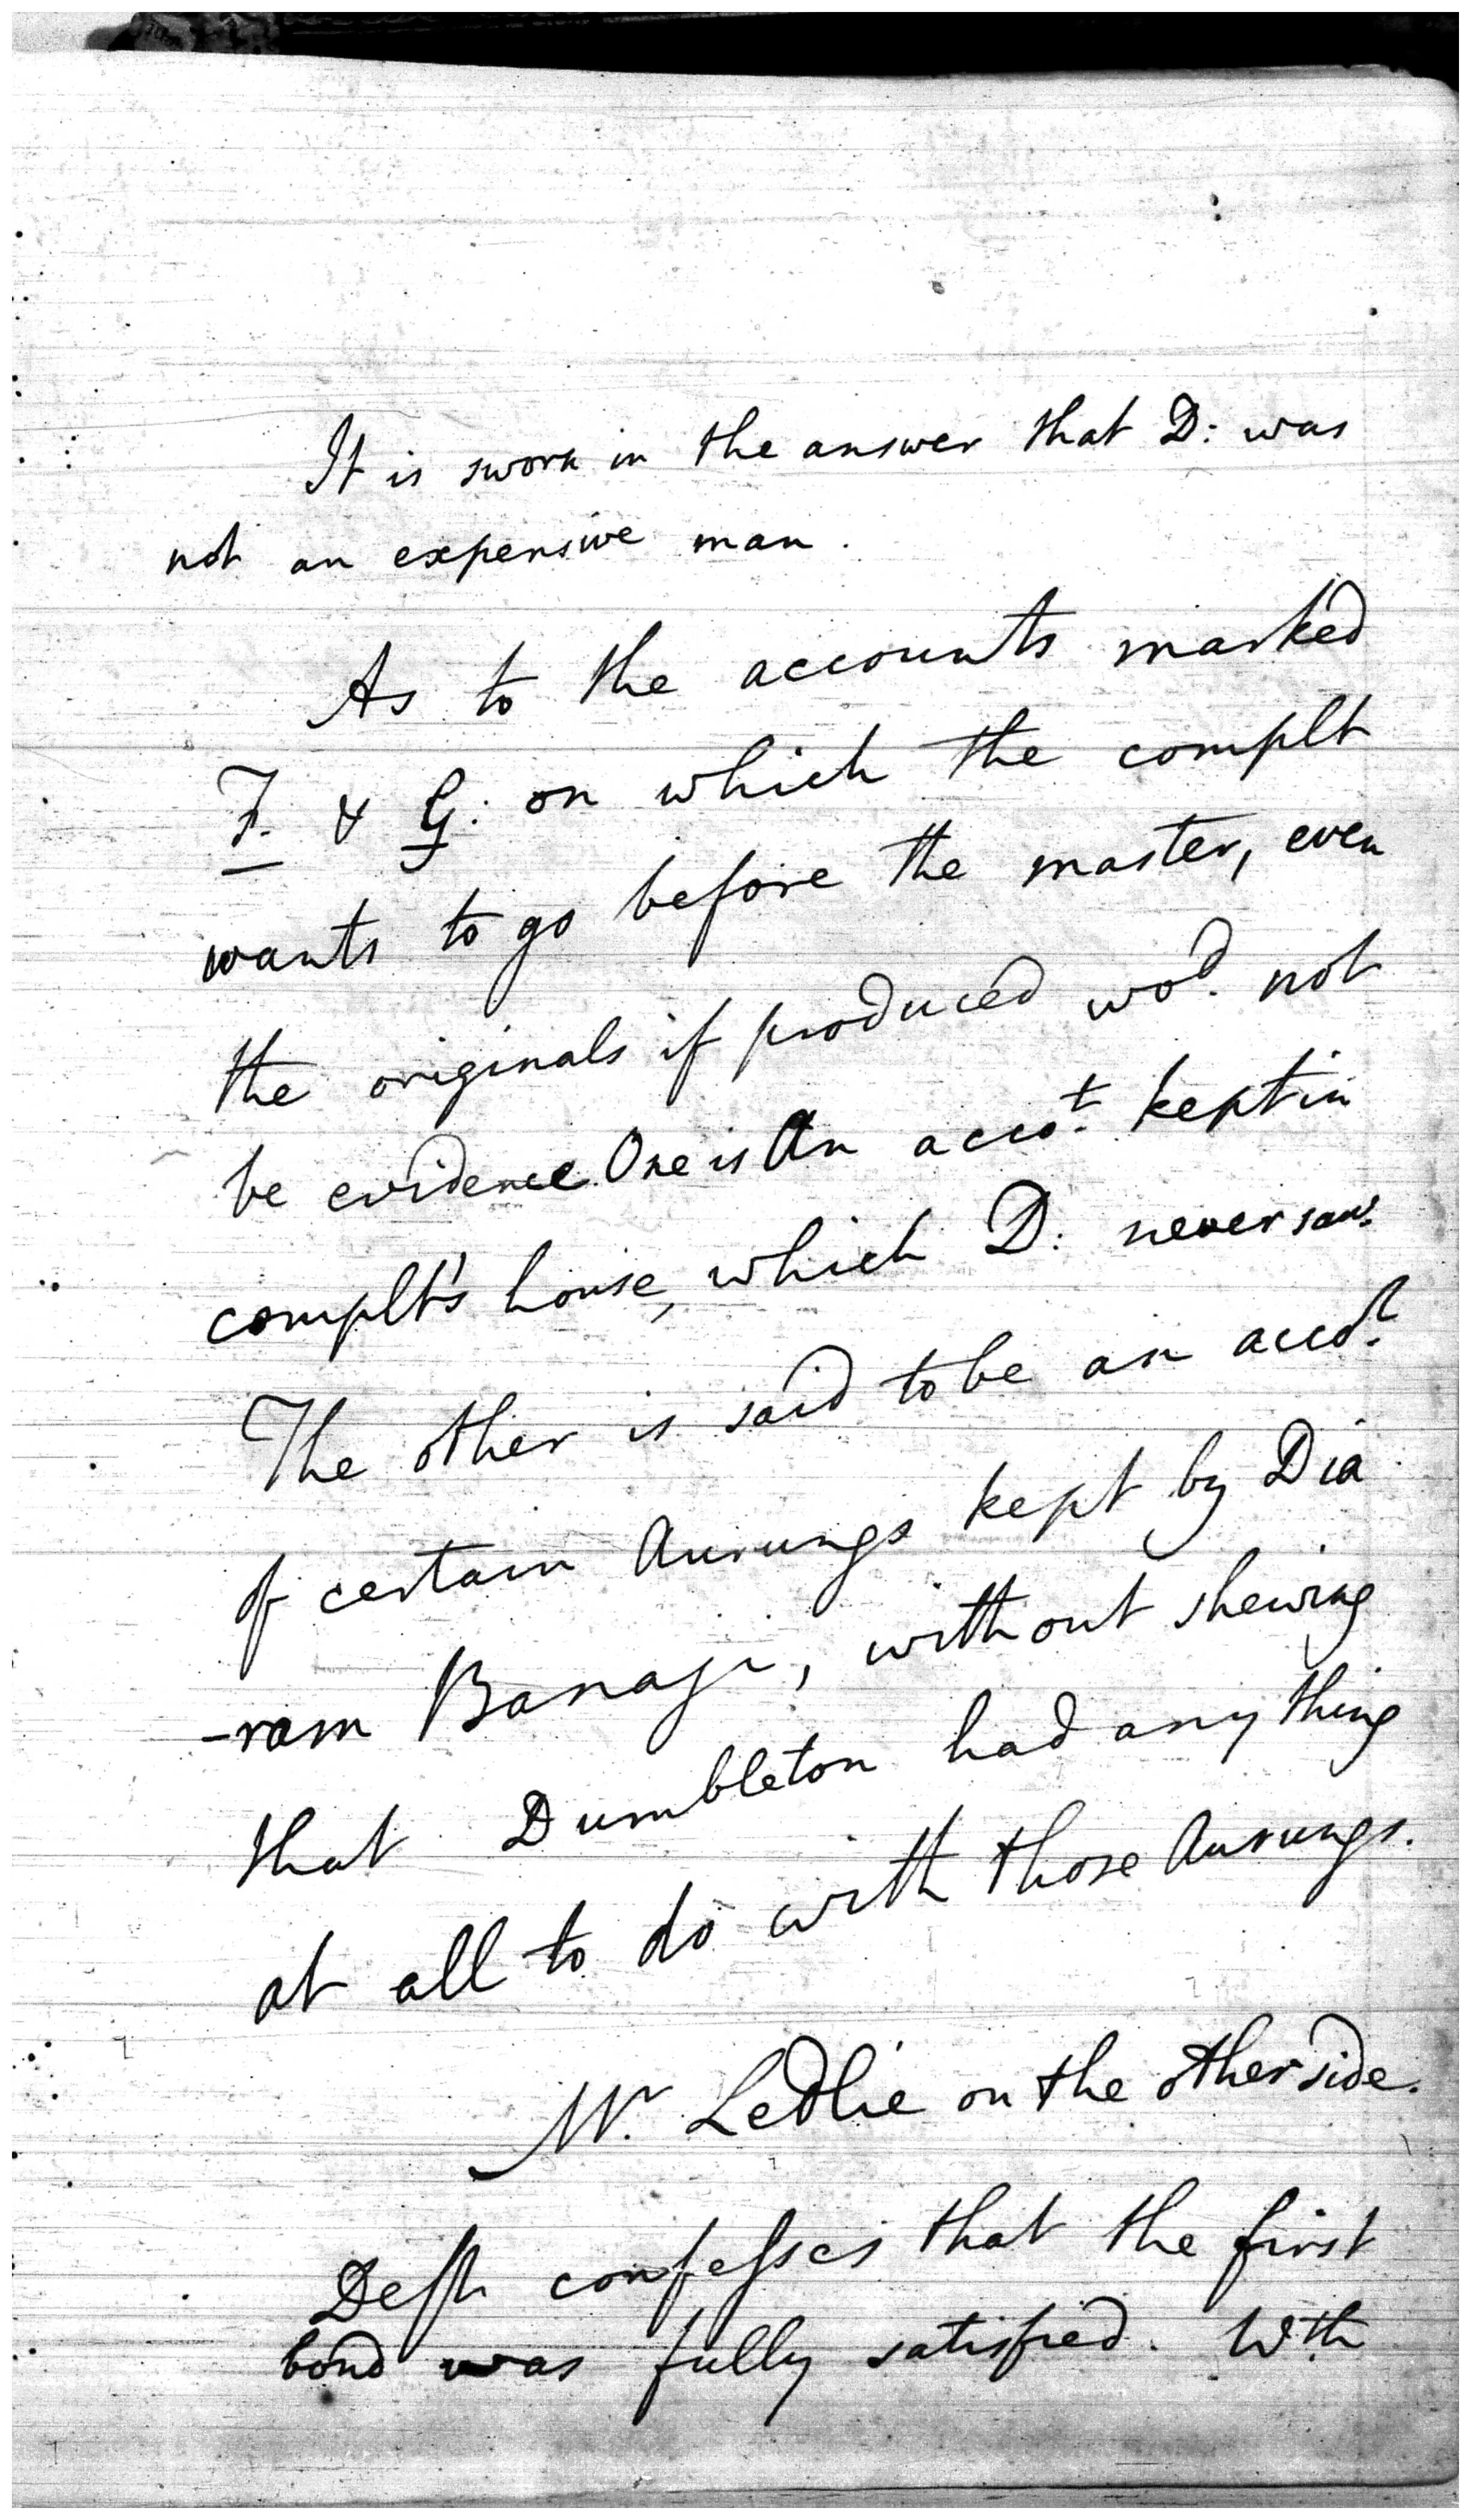 It is sworn in the answer that D: was
not an expensive man.
As to the accounts marked
F. & G: on which the complt
wants to go before the master, even
the originals if produced wod. not
be evidence. One is An accot. kept in
complt's house, which D: never saw.
The other is said to be an accot.
of certain Aurungs kept by Dia
-ram Banaji, without shewing
that Dumbleton had any thing
at all to do with those Aurungs.
W. Ledlie on the other side.
Deft confesses that the first
bond was fully satisfied. Wth